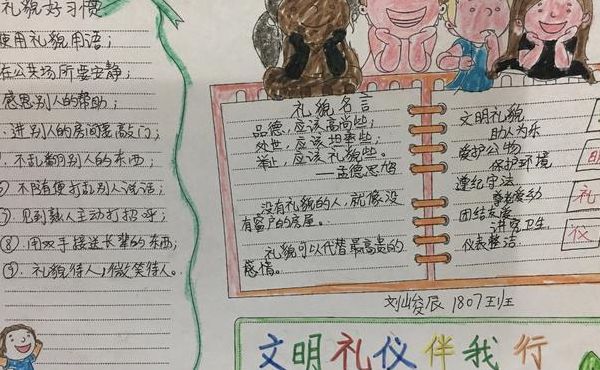 礼貌好习惯
使用礼貌用语；
在公共场所要安静；
感恩别人的帮助；
进别人的房间要敲门；
不乱翻别人的东西；
不随便打乱别人说话；
见到熟人主动打招呼；
⑧.用双手接送长辈的东西；
⑨.礼貌待人，微笑待人。
礼貌名言
品德，应该高尚些；
处世，应该坦率些；
举止，应该礼貌些。
——孟德斯鸠
没有礼貌的人，就像没
有窗户的房屋。
礼貌可以代替最高贵的
感情。
文明礼貌
助人为乐
爱护公物
保护环境
遵纪守法
尊老爱幼
团结友爱
讲究卫生
仪表整洁
明
礼
仪
刘灿俊辰 1807班
文明礼仪伴我行